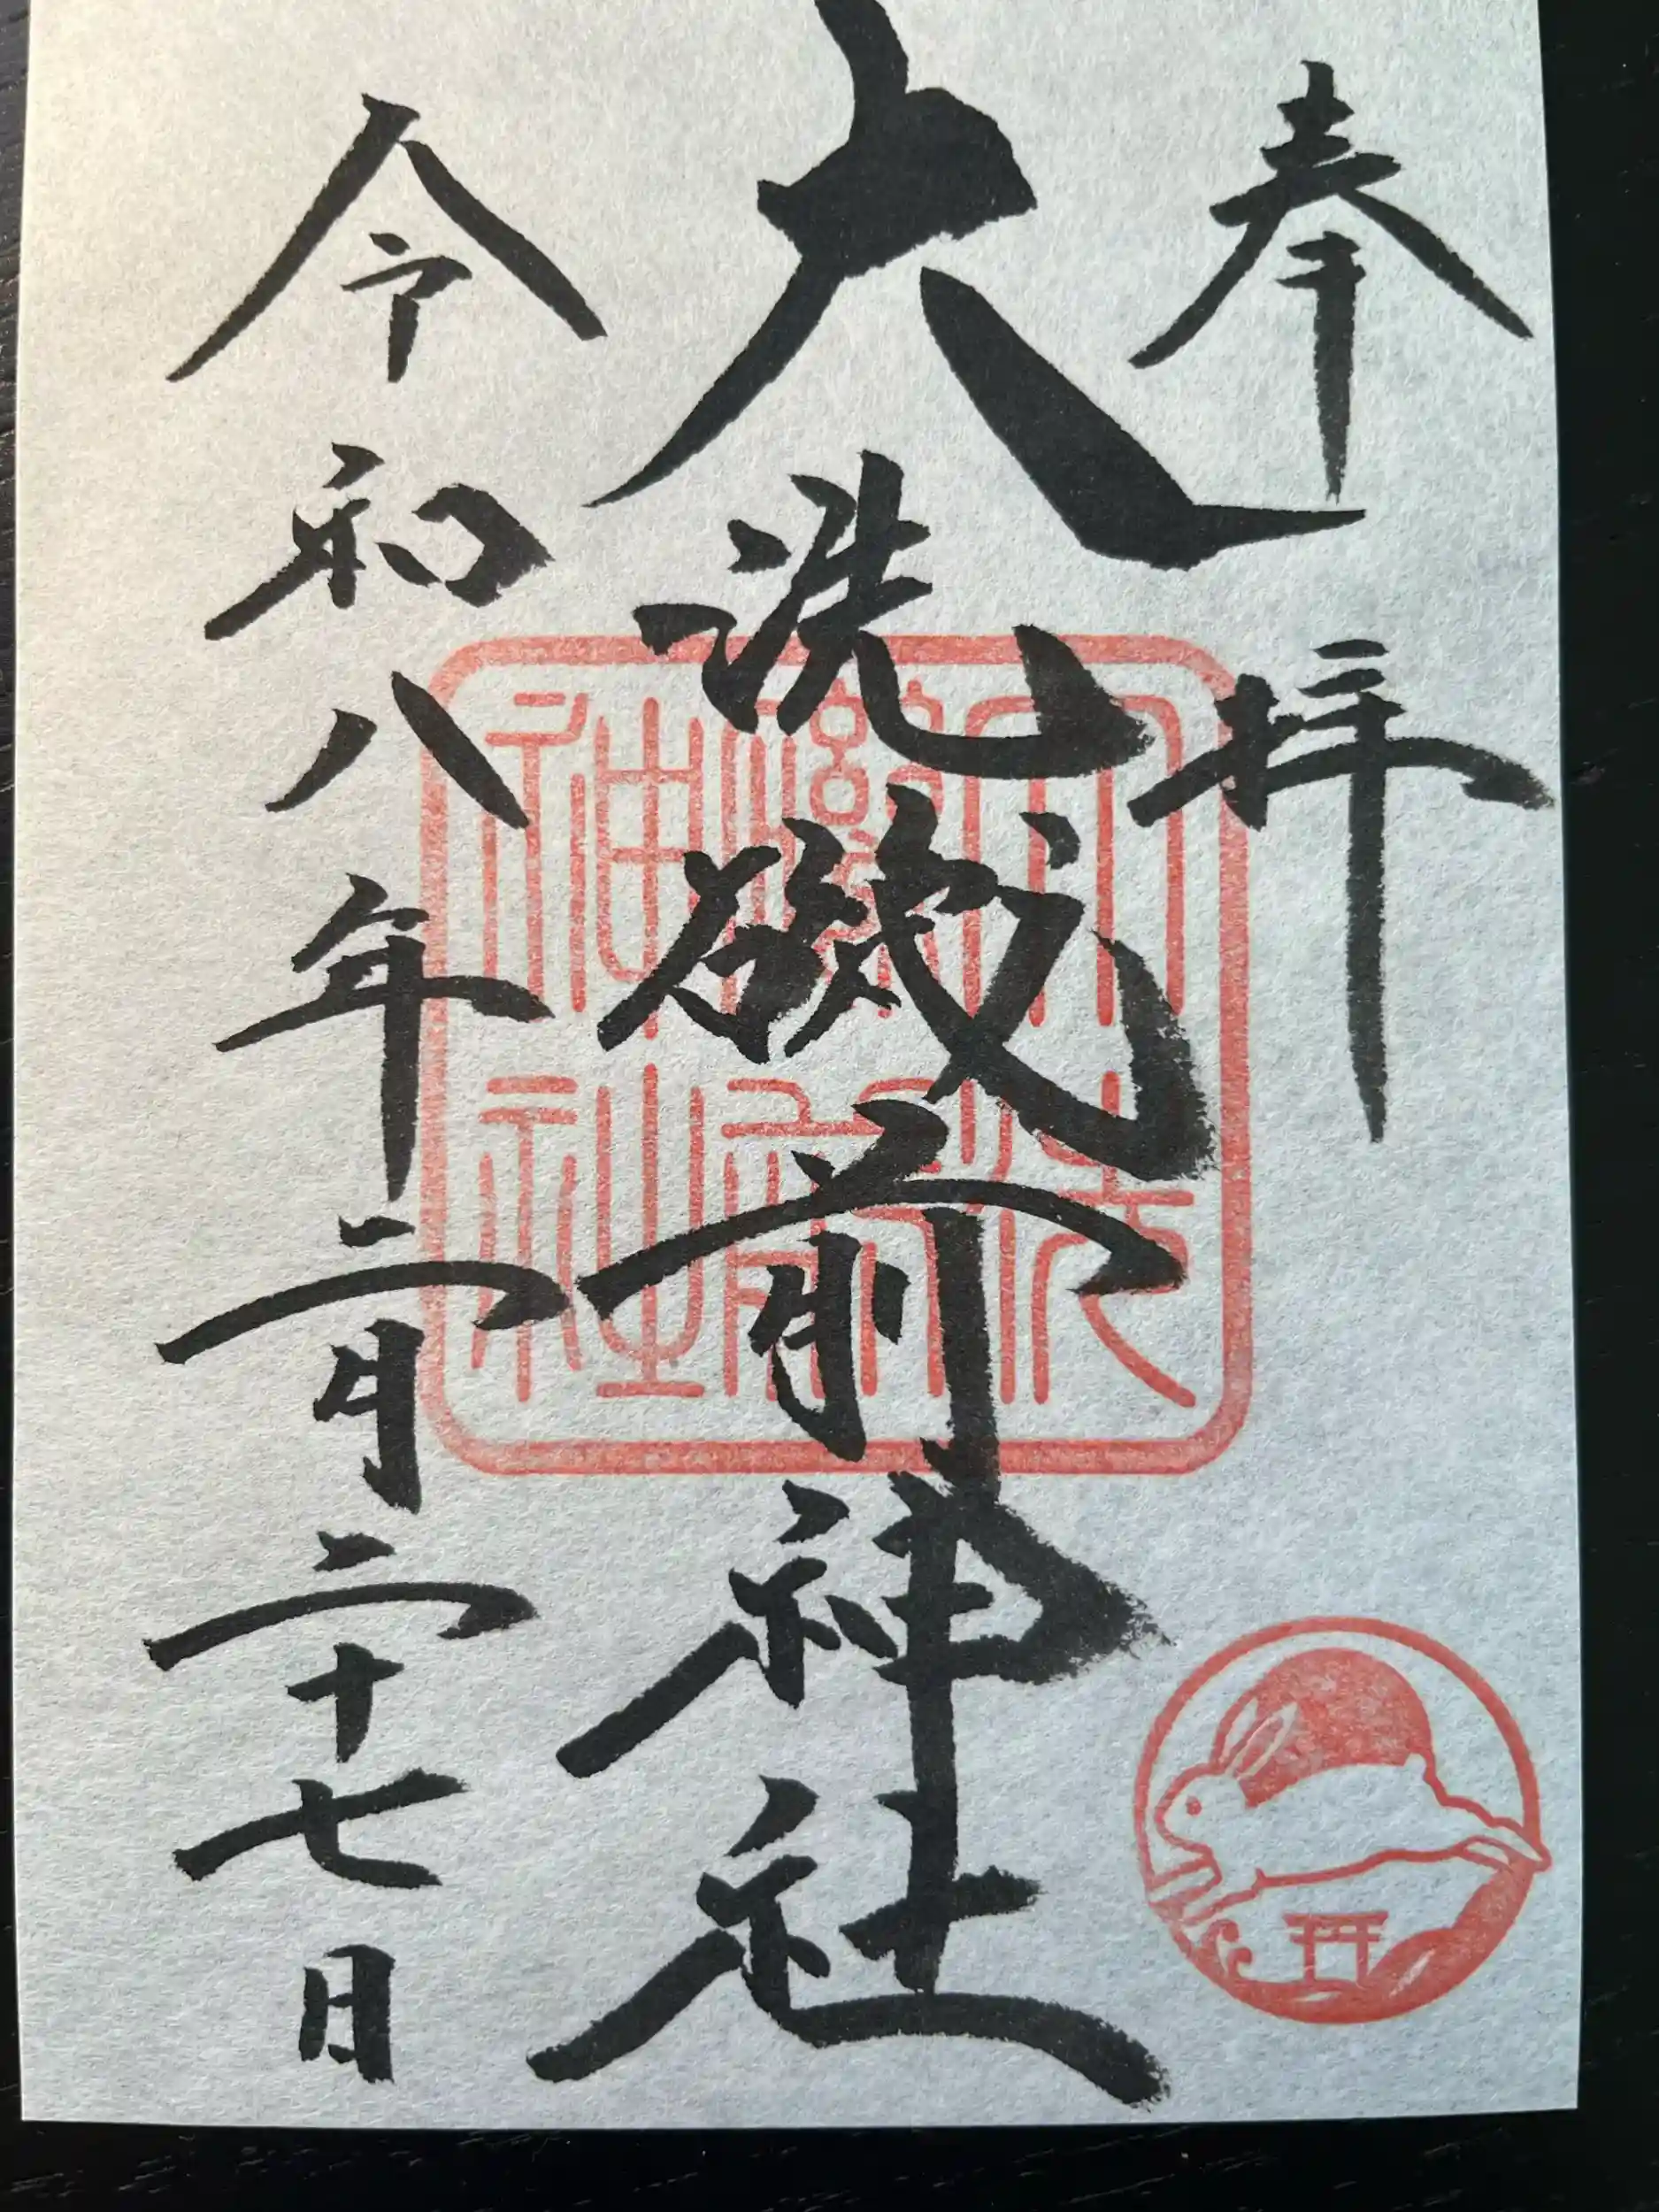 奉拝
大洗磯前神社
令和八年二月二十七日
大洗
前
神社